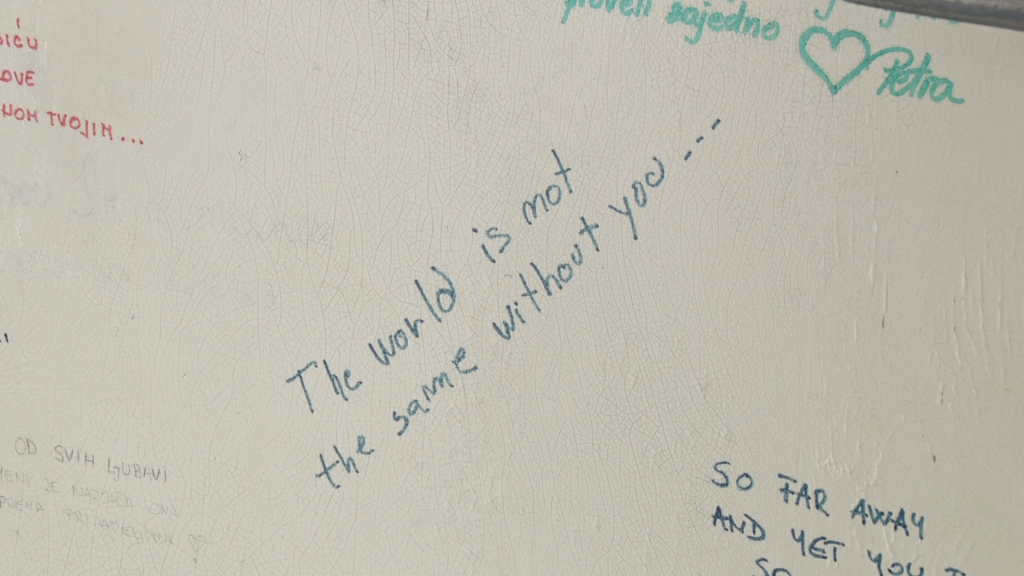 proveli zajedno
Petra
LOVE
TVOJIM...
The world is not
the same without you ...
OD SVIH LJUBAVI
SO FAR AWAY
AND YET YOU
SO